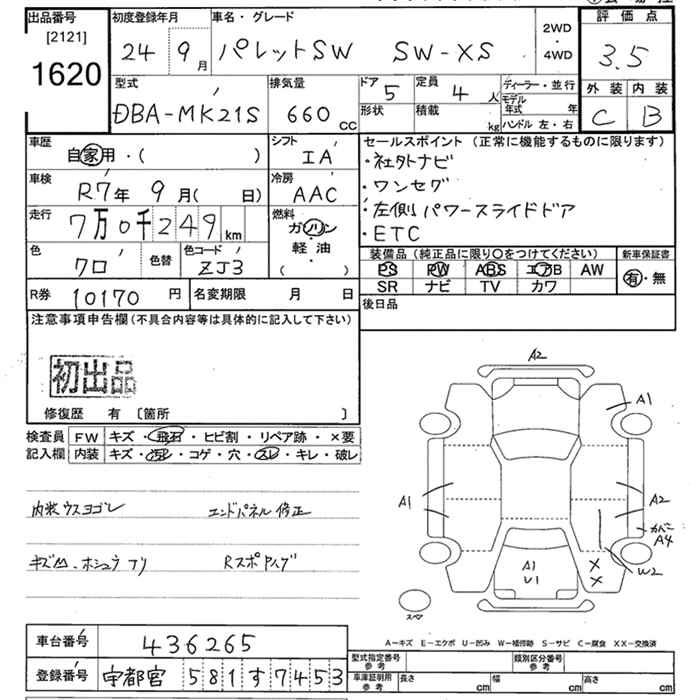 出品番号 初度登録年月 車名・グレード 評価点
[2121]
1620
24 9月 パレットSW SW-XS 2WD・4WD 3.5
型式 排気量 ドア 定員 ディーラー・並行 外装 内装
DBA-MK21S 660cc 5 4人 モデル年式 年 C B
形状 積載 kg ハンドル 左・右
車歴 シフト セールスポイント(正常に機能するものに限ります)
自家用・( ) IA ・社外ナビ
車検 冷房 ・ワンセグ
R7年 9月( 日) AAC ・左側パワースライドドア
走行 燃料 ・ETC
7万0千249km ガソリン
軽油
・
( )
色 色替 色コード 装備品(純正品に限り〇をつけてください) 新車保証書
クロ ZJ3 PS PW ABS エアB AW 有・無
SR ナビ TV カワ
R券 10170円 名変期限 月 日 後日品
注意事項申告欄(不具合内容等は具体的に記入して下さい)
初出品
修復歴 有 〔箇所 〕
検査員 FW キズ・飛石・ヒビ割・リペア跡・×要
記入欄 内装 キズ・汚レ・コゲ・穴・スレ・キレ・破レ
内装ウスヨゴレ エンドパネル修正
キズ凹、ホシュウアリ
A2
A1
A1 A2
カバーA4
A1 U1 X X W2
スペア
A-キズ E-エクボ U-凹み W-補修跡 S-サビ C-腐食 XX-交換済
車台番号 436265
登録番号 宇都宮 581す7453
型式指定番号 参考 類別区分番号 参考
車庫証明用 参考 長さ cm 幅 cm 高さ cm